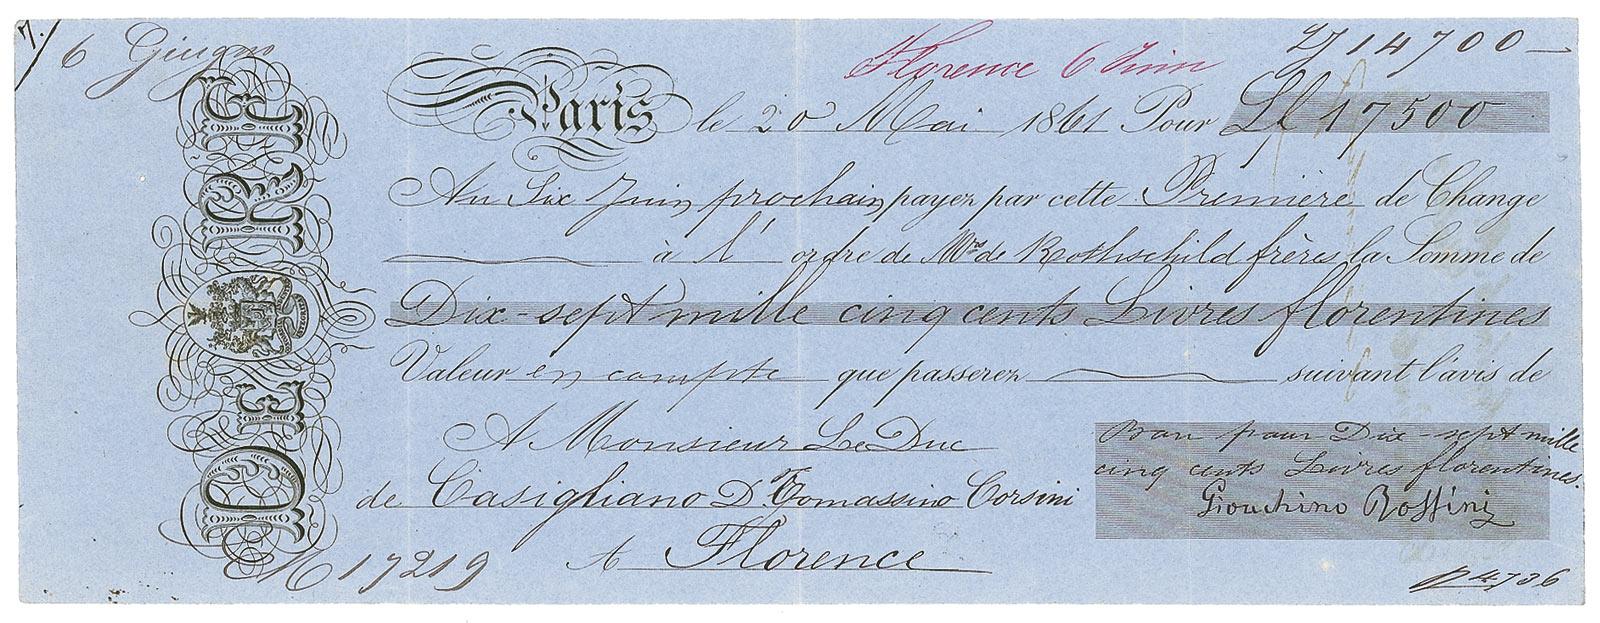 7.
6 Giugno
Florence 6 Juin
14700
Paris le 20 Mai 1861 Pour Lf 17500
Au Six Juin prochain payez par cette Première de Change
à l'ordre de Mrs de Rothschild frères la Somme de
Dix-sept mille cinq cents Livres florentines
Valeur en compte que passerez suivant l'avis de
A Monsieur Le Duc
de Casigliano D. Tomassino Corsini
A Florence
Bon pour Dix-sept mille
cinq cents Livres florentines.
Giouchino Rossini
17219
4736